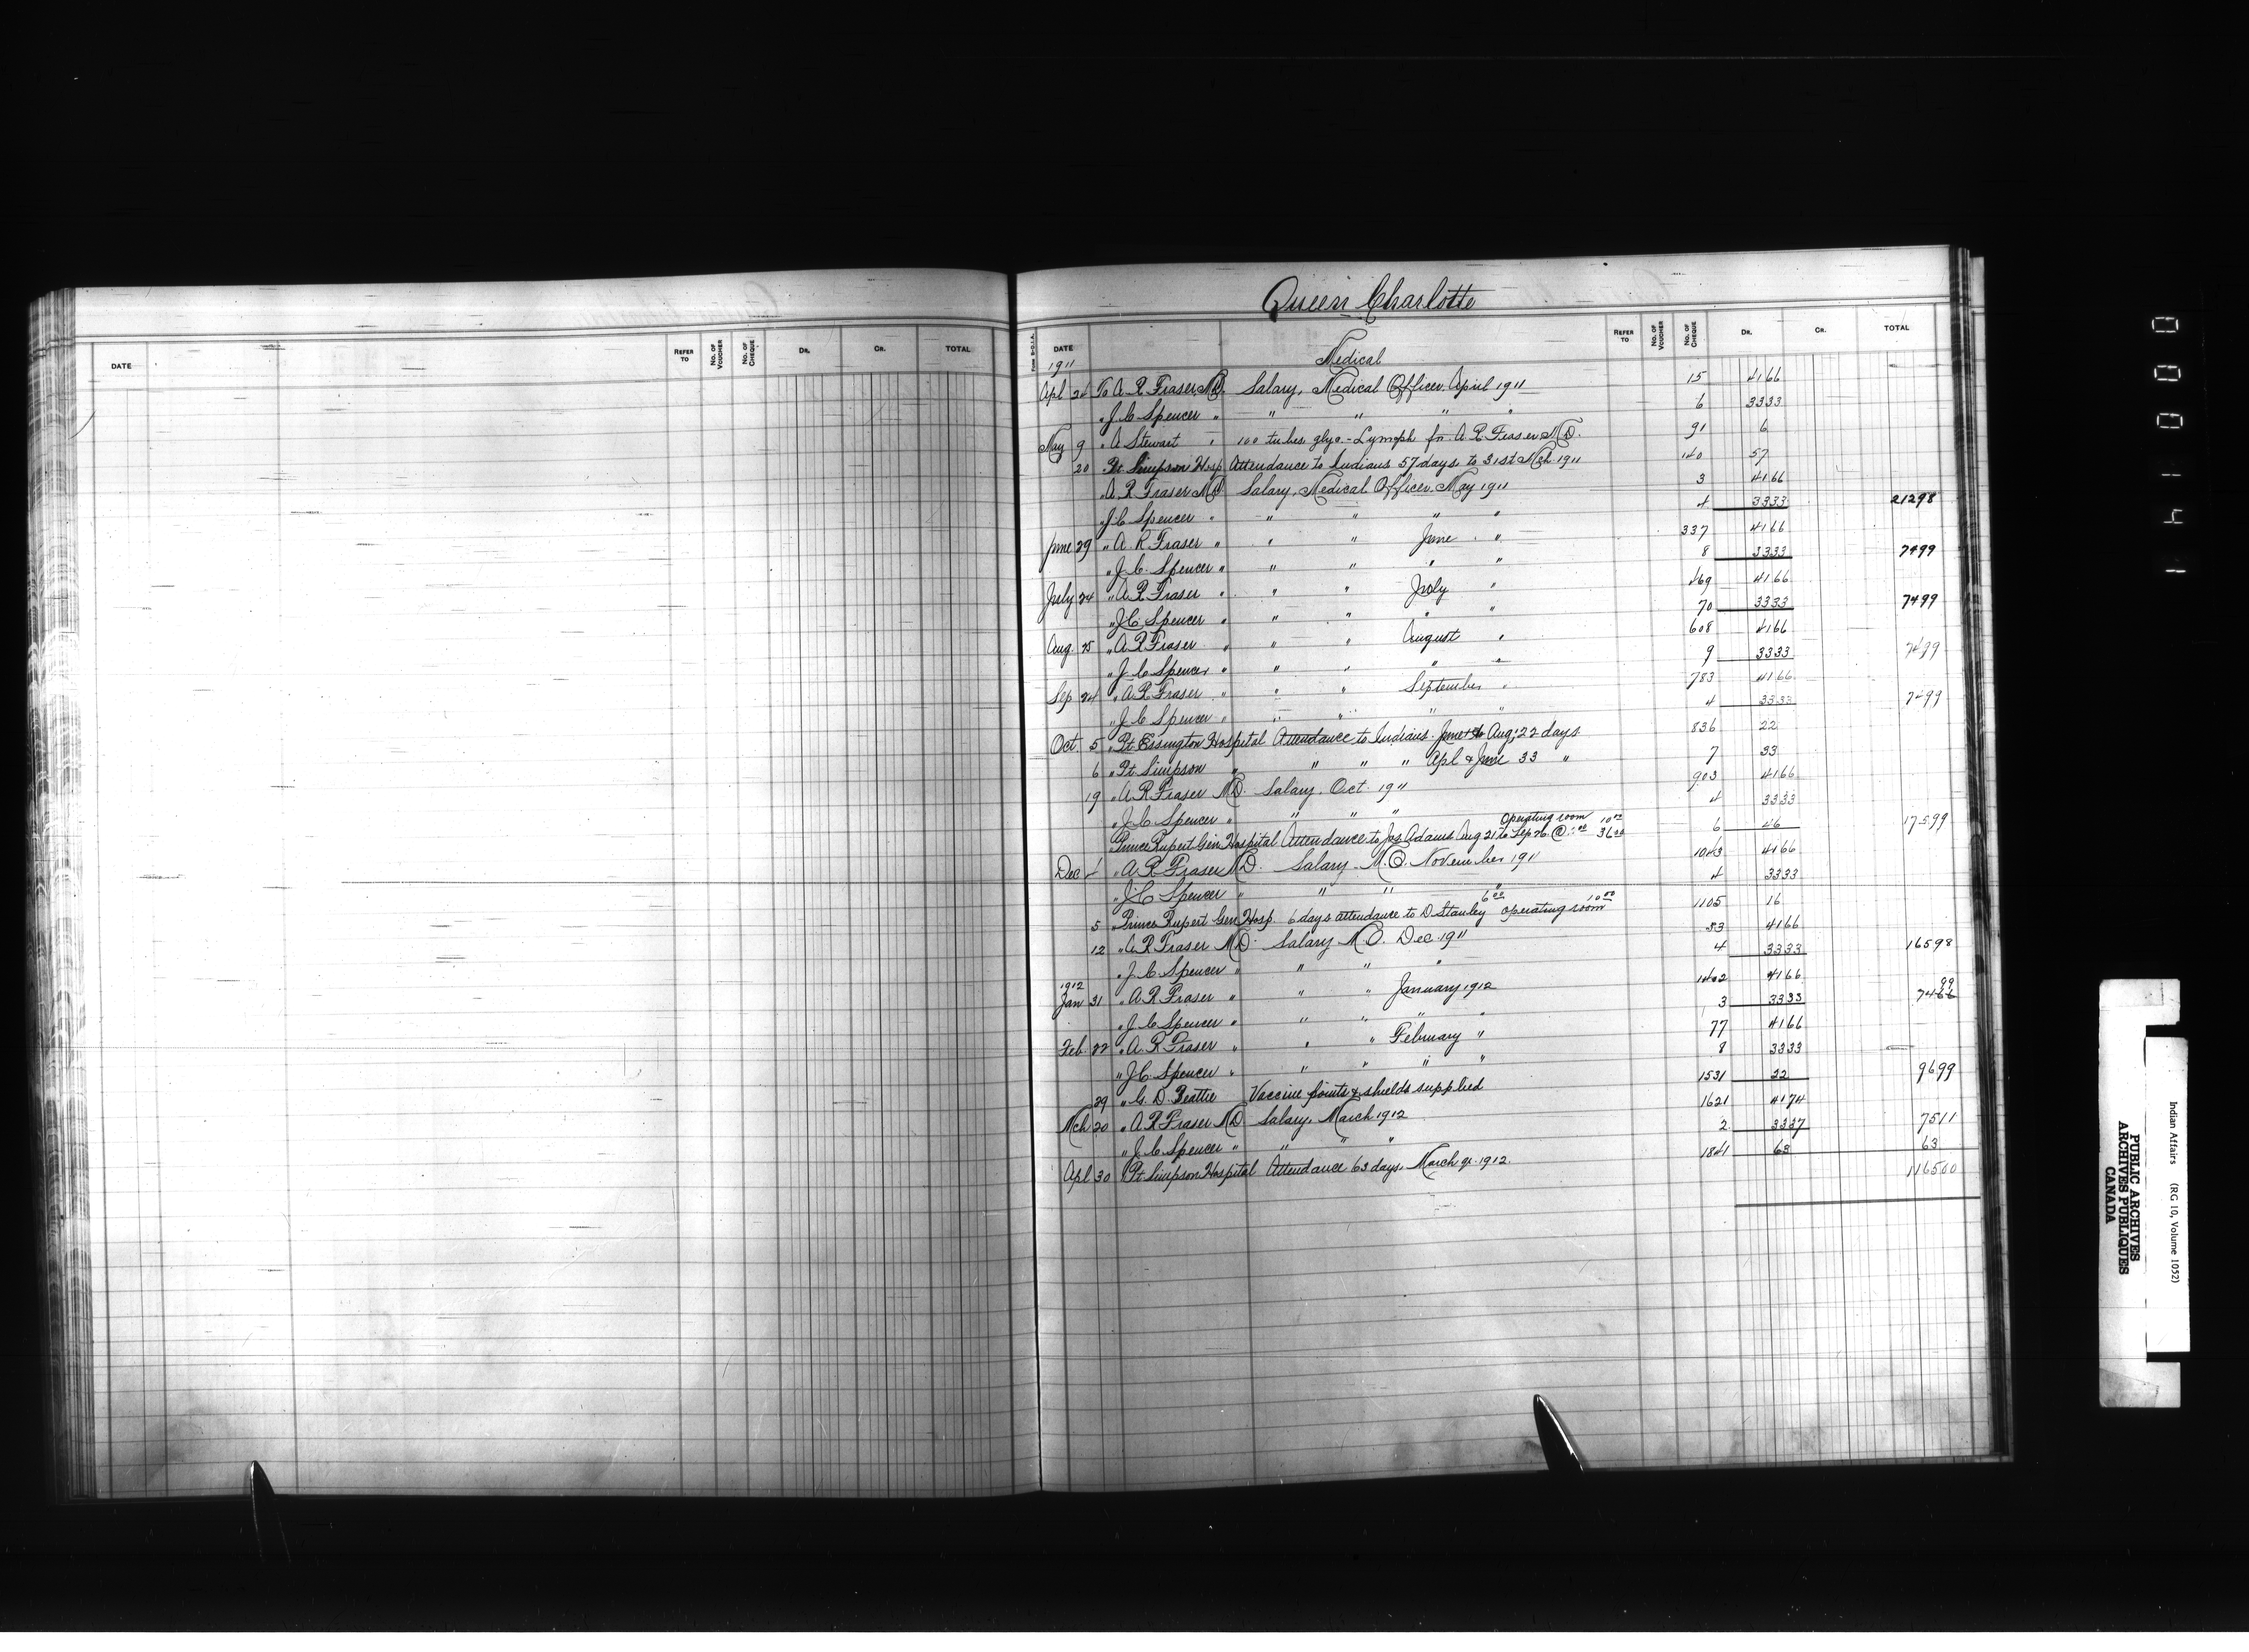 Queen Charlotte
DATE REFER TO No. OF VOUCHER No. OF CHEQUE DR. CR. TOTAL
Form S-D.I.A. DATE REFER TO No. OF VOUCHER No. OF CHEQUE DR. CR. TOTAL
1911 Medical
Apl 24 To A R Fraser, MD. Salary, Medical Officer, April 1911 15 4166
" J C Spencer " " " " " 6 3333
May 9 " A Stewart " 100 tubes glyo - Lymph for A R Fraser MD. 91 6
20 Pt Simpson Hosp Attendance to Indians 57 days to 31st Mch. 1911 140 57
" A R Fraser MD Salary, Medical Officer, May 1911 3 4166
" J C Spencer " " " " " 4 3333 21298
June 29 " A R Fraser " " " June " 337 4166
" J C Spencer " " " " " 8 3333 7499
July 24 " A R Fraser " " " July " 469 4166
" J C Spencer " " " " " 70 3333 7499
Aug. 25 " A R Fraser " " " August " 608 4166
" J C Spencer " " " " " 9 3333 7499
Sep 24 " A R Fraser " " " September " 783 4166
" J C Spencer " " " " " 4 3333 7499
Oct 5 " Pt Essington Hospital Attendance to Indians June to Aug; 22 days 836 22
6 " Pt Simpson " " " " Apl & June 33 " 7 33
19 " A R Fraser MD. Salary, Oct 1911 903 4166
" J C Spencer " " " " 4 3333
Operating room 10 00
Prince Rupert Gen Hospital Attendance to Jos Adams Aug 21 to Sep 26 @ 36 00 6 46 17599
Dec 1 " A R Fraser MD. Salary M.O. November 1911 1043 4166
" J C Spencer " " " " 4 3333
6 00 10 00
5 " Prince Rupert Gen Hosp. 6 days attendance to D Stanley operating room 1105 16
12 " A R Fraser MD. Salary M O. Dec. 1911 53 4166
" J C Spencer " " " " 4 3333 16598
1912
Jan 31 " A R Fraser " " " January 1912 1402 4166
" J C Spencer " " " " " 3 3333 7466 99
Feb. 22 " A R Fraser " " " February " 77 4166
" J C Spencer " " " " " 8 3333
29 " G. D. Beattie Vaccine points & shields supplied 1531 22 9699
Mch 20 " A R Fraser MD Salary, March 1912 1621 4174
" J C Spencer " " " " 2 3337 7511
Apl 30 Pt Simpson Hospital Attendance 63 days, March qr. 1912. 1841 63 63
116500
000141
Indian Affairs (RG 10, Volume 1052)
PUBLIC ARCHIVES
ARCHIVES PUBLIQUES
CANADA